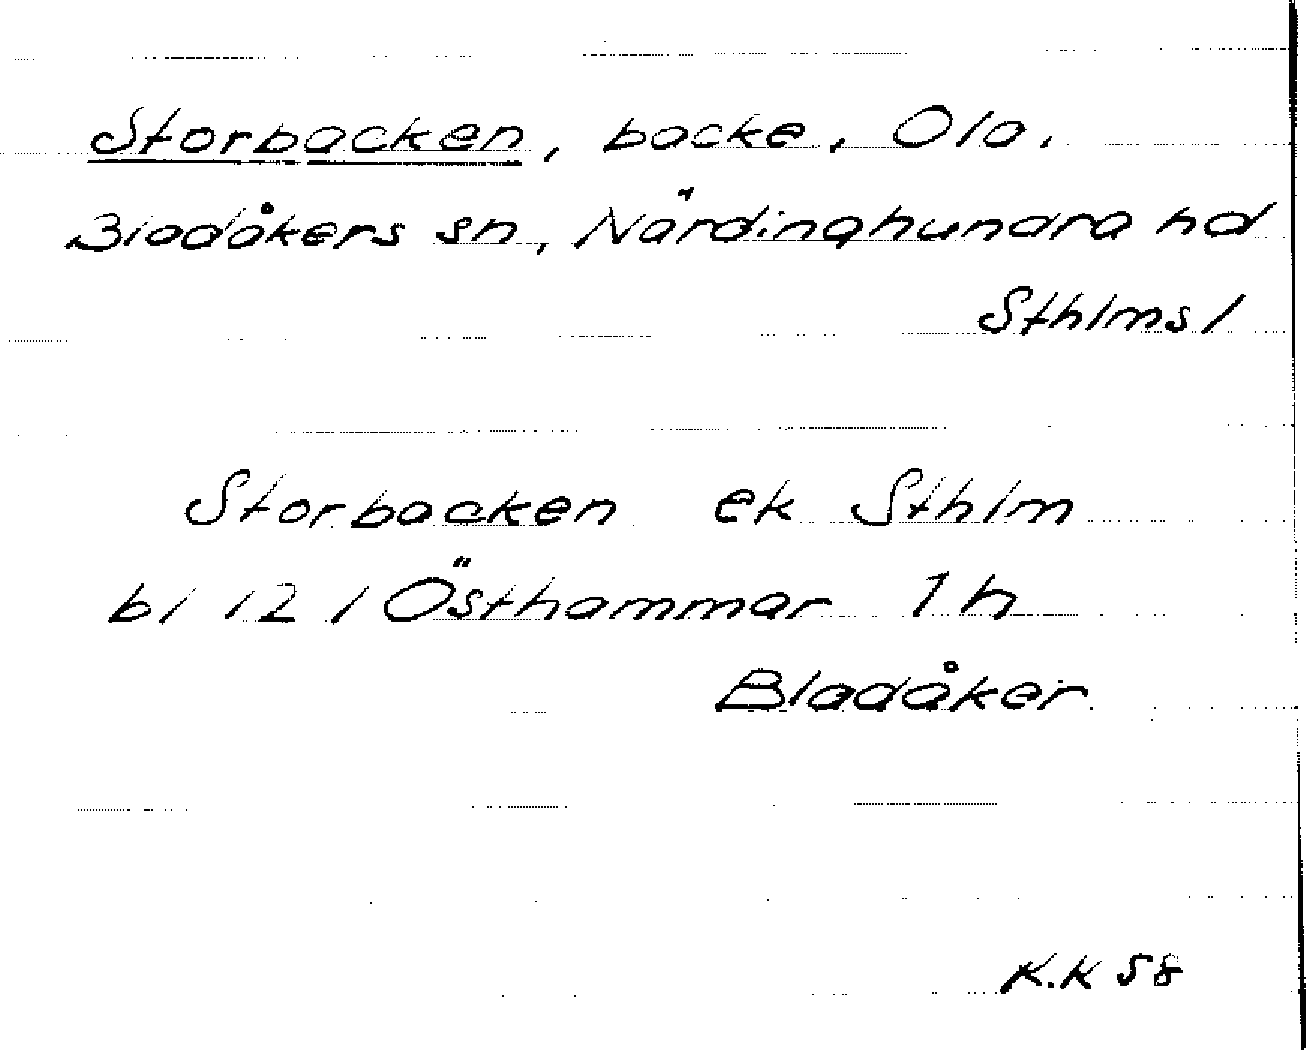 Storbacken, backe, Ola.
Bladåkers sn, Närdinghundra hd
Sthlms l
Storbacken ek Sthlm
bl 12 1 Östhammar 1 h
Bladåker
K.K 58